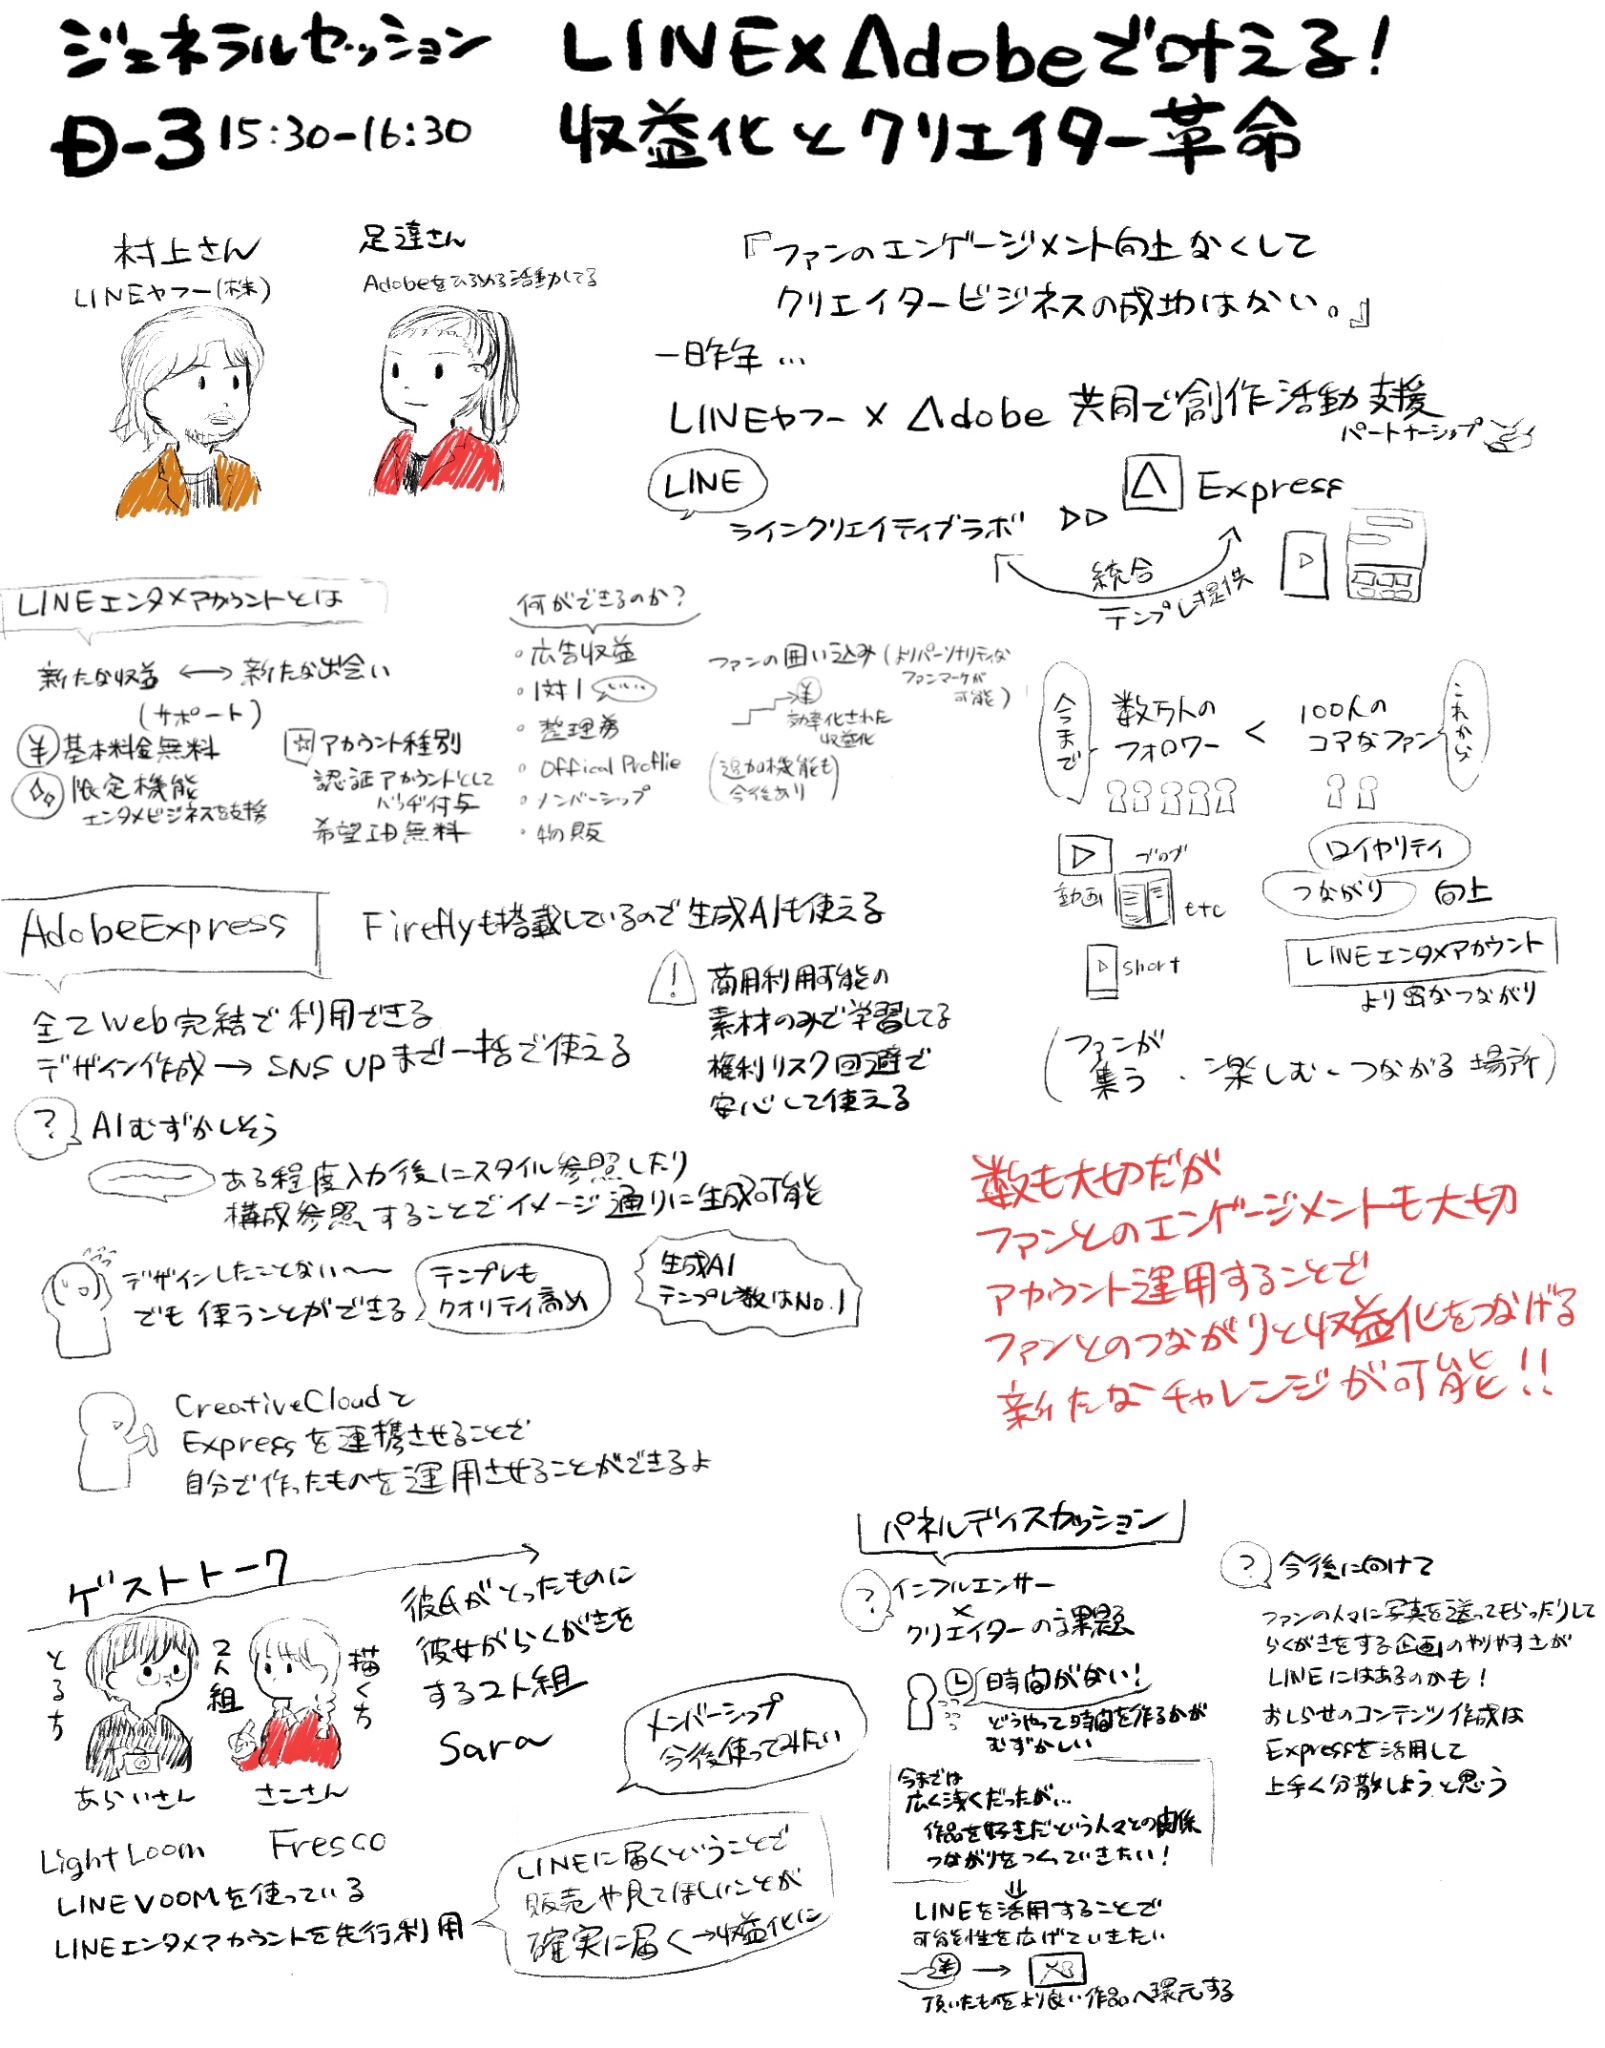 ジェネラルセッション
D-3 15:30-16:30
LINE×Adobeで叶える!
収益化とクリエイター革命
村上さん
LINEヤフー(株)
足達さん
Adobeをひろめる活動してる
『ファンのエンゲージメント向上なくして
クリエイタービジネスの成功はない。』
一昨年…
LINEヤフー×Adobe 共同で創作活動支援
パートナーシップ
LINE
ラインクリエイティブラボ
Express
統合
テンプレ提供
LINEエンタメアカウントとは
新たな収益 ←→ 新たな出会い
(サポート)
¥ 基本料金無料
限定機能
エンタメビジネスを支援
アカウント種別
認証アカウントとして
バッヂ付与
希望ID無料
何ができるのか?
・広告収益
・1対1
・整理券
・Offical Proflie
・メンバーシップ
・物販
ファンの囲い込み(よりパーソナリティな
ファンマーケが
可能)
¥
効率化された
収益化
(追加機能も
今後あり)
今うまで
数万人の
フォロワー
<
100人の
コアなファン
これから
動画
ブログ
etc
short
ロイヤリティ
つながり 向上
LINEエンタメアカウント
より密なつながり
(ファンが
集う・楽しむ・つながる場所)
AdobeExpress
Fireflyも搭載しているので生成AIも使える
全てWeb完結で利用できる
デザイン作成→SNS UPまで一括で使える
! 商用利用可能の
素材のみで学習してる
権利リスク回避で
安心して使える
? AIむずかしそう
ある程度入力後にスタイル参照したり
構成参照することでイメージ通りに生成可能
デザインしたことない〜〜
でも使うことができる
テンプレも
クオリティ高め
生成AI
テンプレ数はNo.1
CreativeCloudと
Expressを連携させることで
自分で作ったものを運用させることができるよ
数も大切だが
ファンとのエンゲージメントも大切
アカウント運用することで
ファンとのつながりと収益化をつなげる
新たなチャレンジが可能!!
ゲストトーク
とるち
2人組
描くち
あらいさん
さこさん
彼氏がとったものに
彼女がらくがきを
する2人組
Sara
メンバーシップ
今後使ってみたい
LightLoom
Fresco
LINEVOOMを使っている
LINEエンタメアカウントを先行利用
LINEに届くということで
販売や見てほしいことが
確実に届く→収益化に
パネルディスカッション
? インフルエンサー
×
クリエイターの課題
時間がない!
どうやって時間を作るかが
むずかしい
今までは
広く浅くだったが…
作品を好きだという人々との関係
つながりをつくっていきたい!
LINEを活用することで
可能性を広げていきたい
¥ →
頂いたものをより良い作品へ還元する
? 今後に向けて
ファンの人々に写真を送ってもらったりして
らくがきをする企画のやりやすさが
LINEにはあるのかも!
おしらせのコンテンツ作成は
Expressを活用して
上手く分散しようと思う